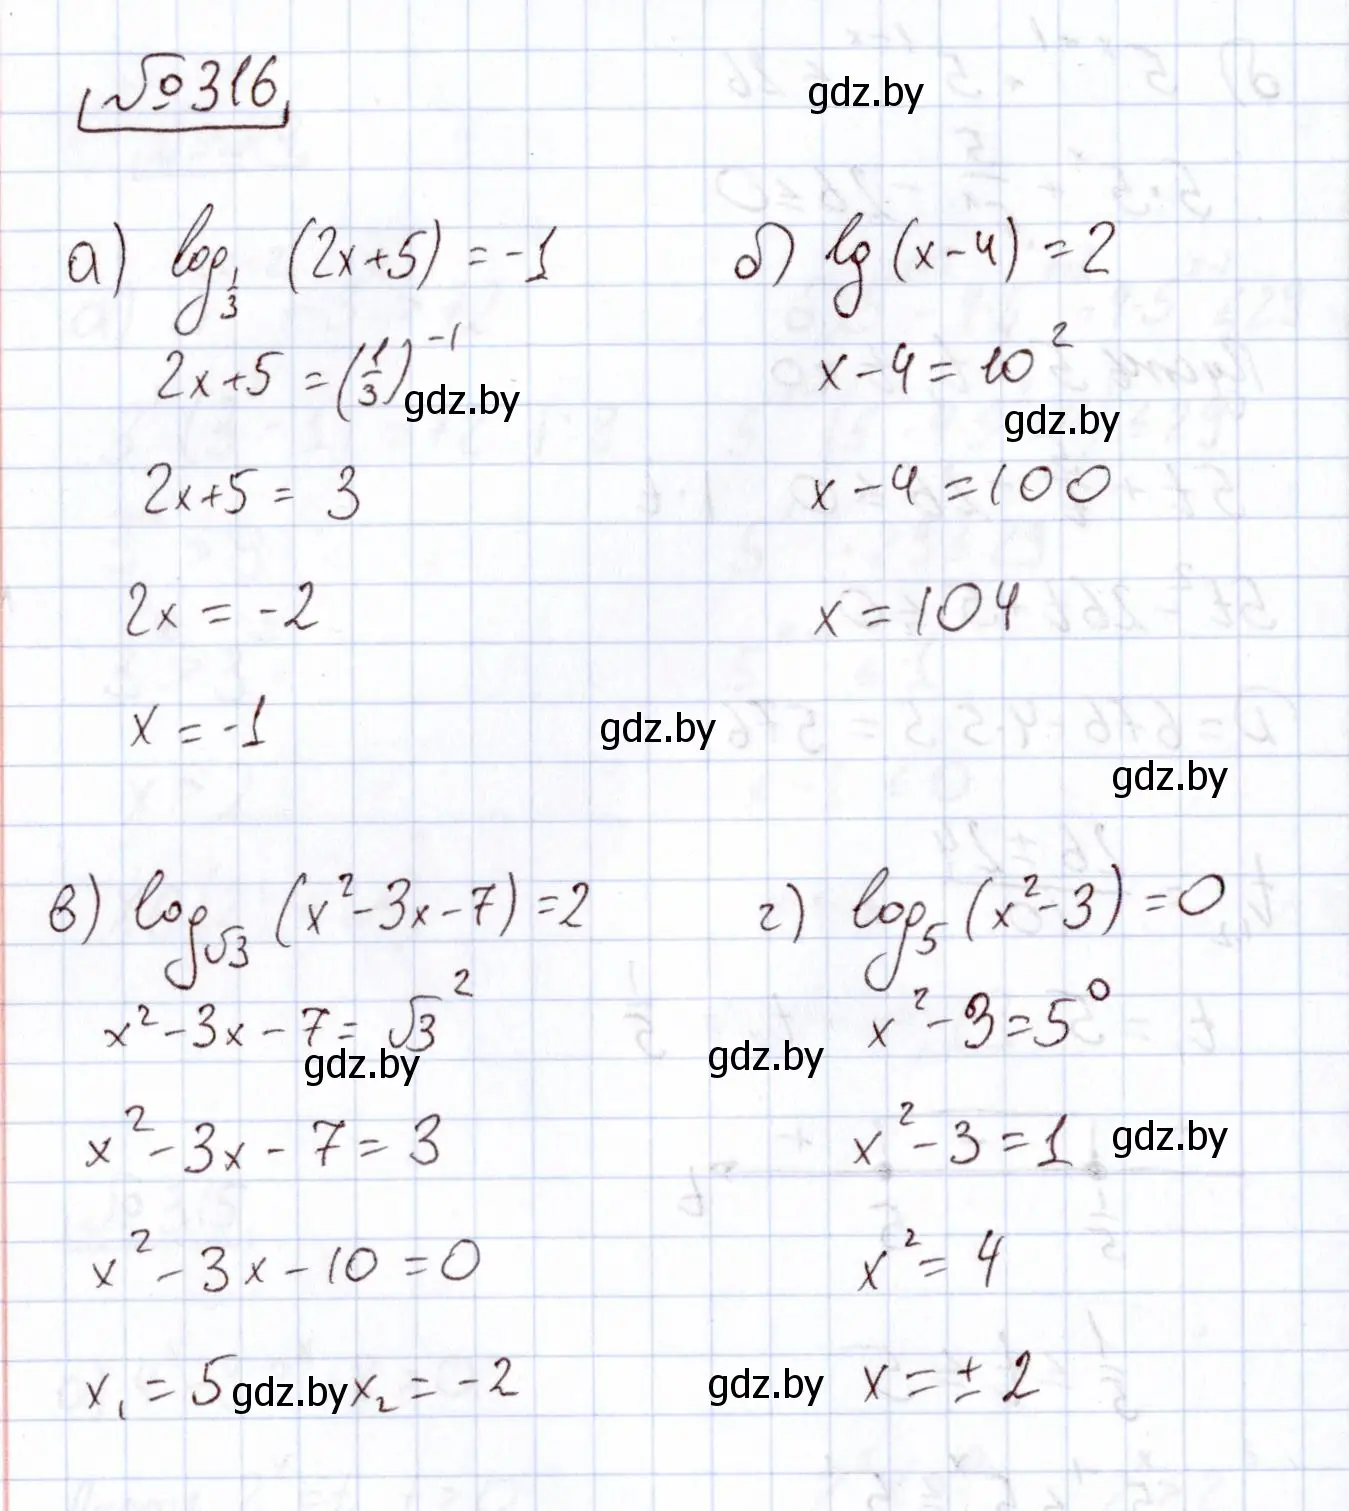 №316
а) log_{1/3} (2x+5) = -1
2x+5 = (1/3)^{-1}
2x+5 = 3
2x = -2
x = -1
б) lg (x-4) = 2
x-4 = 10^2
x-4 = 100
x = 104
в) log_{√3} (x^2-3x-7) = 2
x^2-3x-7 = √3^2
x^2-3x-7 = 3
x^2-3x-10 = 0
x_1 = 5 x_2 = -2
г) log_5 (x^2-3) = 0
x^2-3 = 5^0
x^2-3 = 1
x^2 = 4
x = ±2
gdz.by
gdz.by
gdz.by
gdz.by
gdz.by
gdz.by
gdz.by
gdz.by
gdz.by
gdz.by